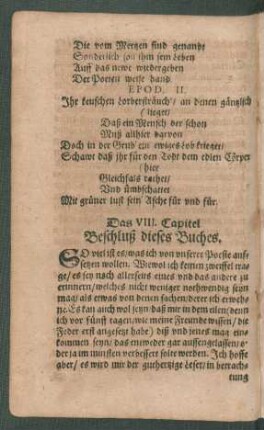 Die vom Mertzen sind genandt
Sonderlich soll ihm sein leben
Auff das newe wiedergeben
Der Poeten weise handt
EPOD. II.
Ihr keuschen lorbersträuch / an denen gäntzlich
(lieget /
Daß ein Mensch der schon
Muß allhier darvon
Doch in der Grub' ein ewiges lob krieget /
Schawt daß ihr für den Todt dem edlen Cörper
(hier
Gleichfals rathet /
Vnd vmbschattet
Mit grüner lust sein' Asche für vnd für.
Das VIII. Capitel
Beschluß dieses Buches.
SO viel ist es / was ich von vnserer Poesie auff-
setzen wollen. Wiewol ich keinen zweiffel tra-
ge / es sey noch allerseits eines vnd das andere zu
erinnern / welches nicht weniger nothwendig sein
mag / als etwas von denen sachen / derer ich erweh-
ne. Es kan auch wol sein / daß mir in dem eilen (denn
ich vor fünff tagen / wie meine Freunde wissen / die
Feder erst angesetzt habe) diß vnd jenes mag ein-
kommen sein / das entweder gar aussengelassen / o-
der ja im minsten verbessert solte werden. Ich hoffe
aber / es wird mir der guthertzige Leser / in betrach-
tung